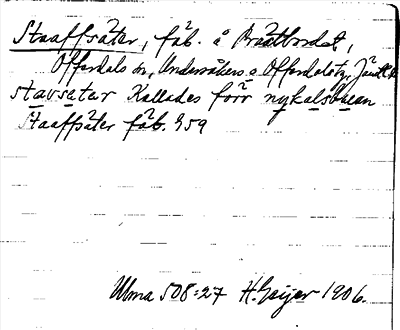 Staaffsäter, fäb. å Brattbordet,
Offerdals sn, Undersåkers o Offerdals tg, Jämtl.
stavsætar Kallades förr nykalsbuan
Staaffsäter fäb. G59
Ulma 508:27 H. Geijer 1906.